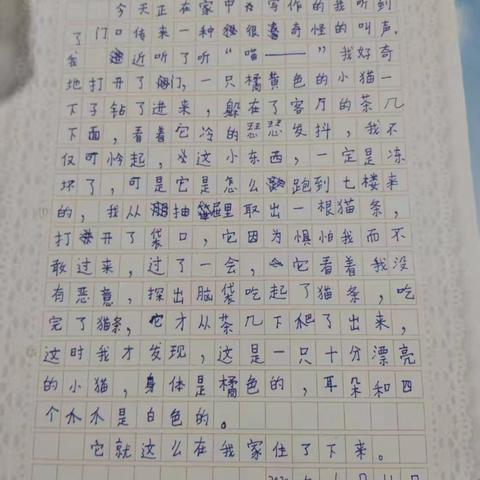 今天正在家中写作的我听到
了门口传来一种很奇怪的叫声,
我近听了听“喵——”我好奇
地打开了门,一只橘黄色的小猫一
下子钻了进来,躲在了客厅的茶几
下面,看着它冷的瑟瑟发抖,我不
仅可怜起,这小东西,一定是冻
坏了,可是它是怎么跑到七楼来
的,我从抽屉里取出一根猫条,
打开了袋口,它因为惧怕我而不
敢过来,过了一会,它看着我没
有恶意,探出脑袋吃起了猫条,吃
完了猫条,它才从茶几下爬了出来,
这时我才发现,这是一只十分漂亮
的小猫,身体是橘色的,耳朵和四
个爪爪是白色的。
它就这么在我家住了下来。